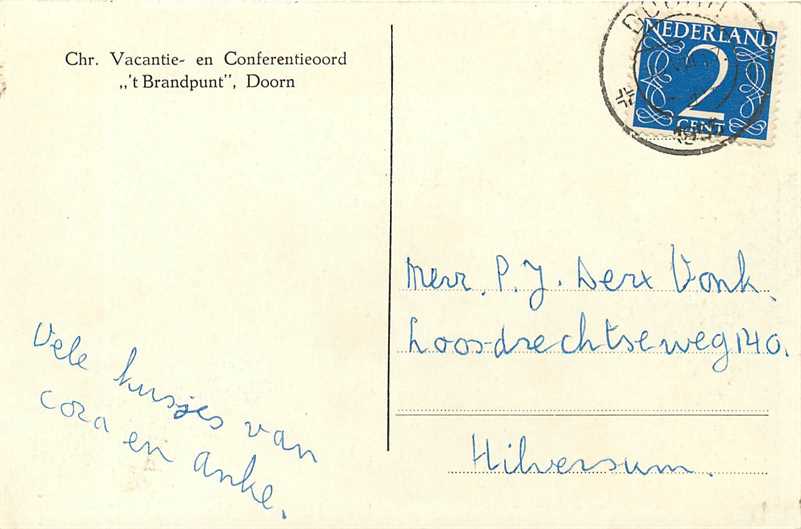 Chr. Vacantie- en Conferentieoord
„'t Brandpunt", Doorn
NEDERLAND
2
CENT
Mevr. P. J. Derx Vonk.
Loosdrechtseweg 140.
Hilversum.
Vele kusjes van
Cora en Anke.